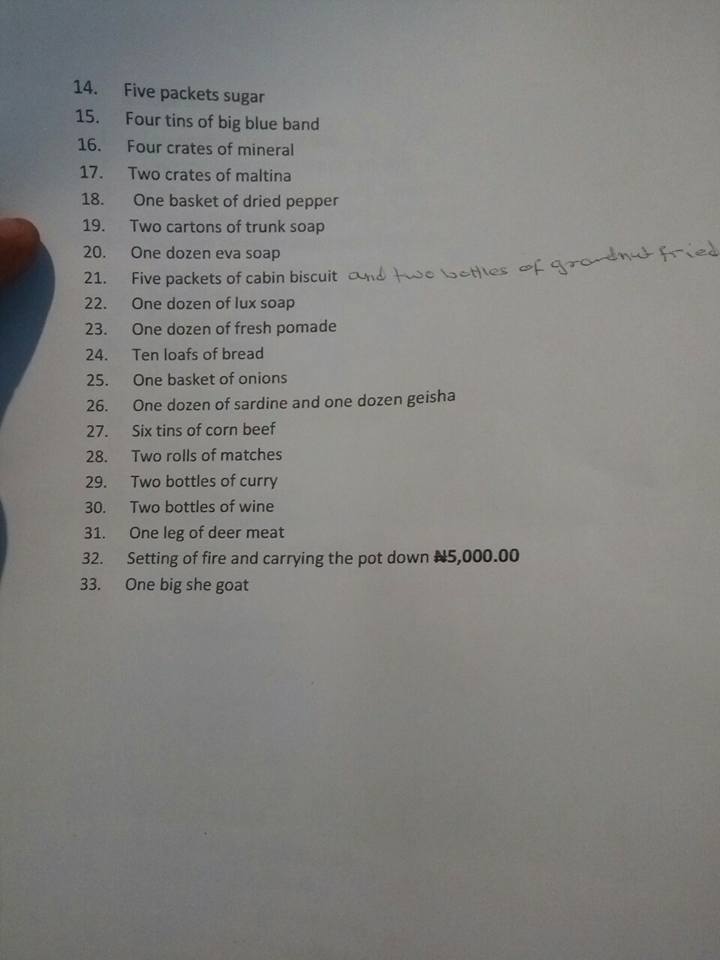 14. Five packets sugar
15. Four tins of big blue band
16. Four crates of mineral
17. Two crates of maltina
18. One basket of dried pepper
19. Two cartons of trunk soap
20. One dozen eva soap
21. Five packets of cabin biscuit and two bottles of grandnut fried
22. One dozen of lux soap
23. One dozen of fresh pomade
24. Ten loafs of bread
25. One basket of onions
26. One dozen of sardine and one dozen geisha
27. Six tins of corn beef
28. Two rolls of matches
29. Two bottles of curry
30. Two bottles of wine
31. One leg of deer meat
32. Setting of fire and carrying the pot down ₦5,000.00
33. One big she goat